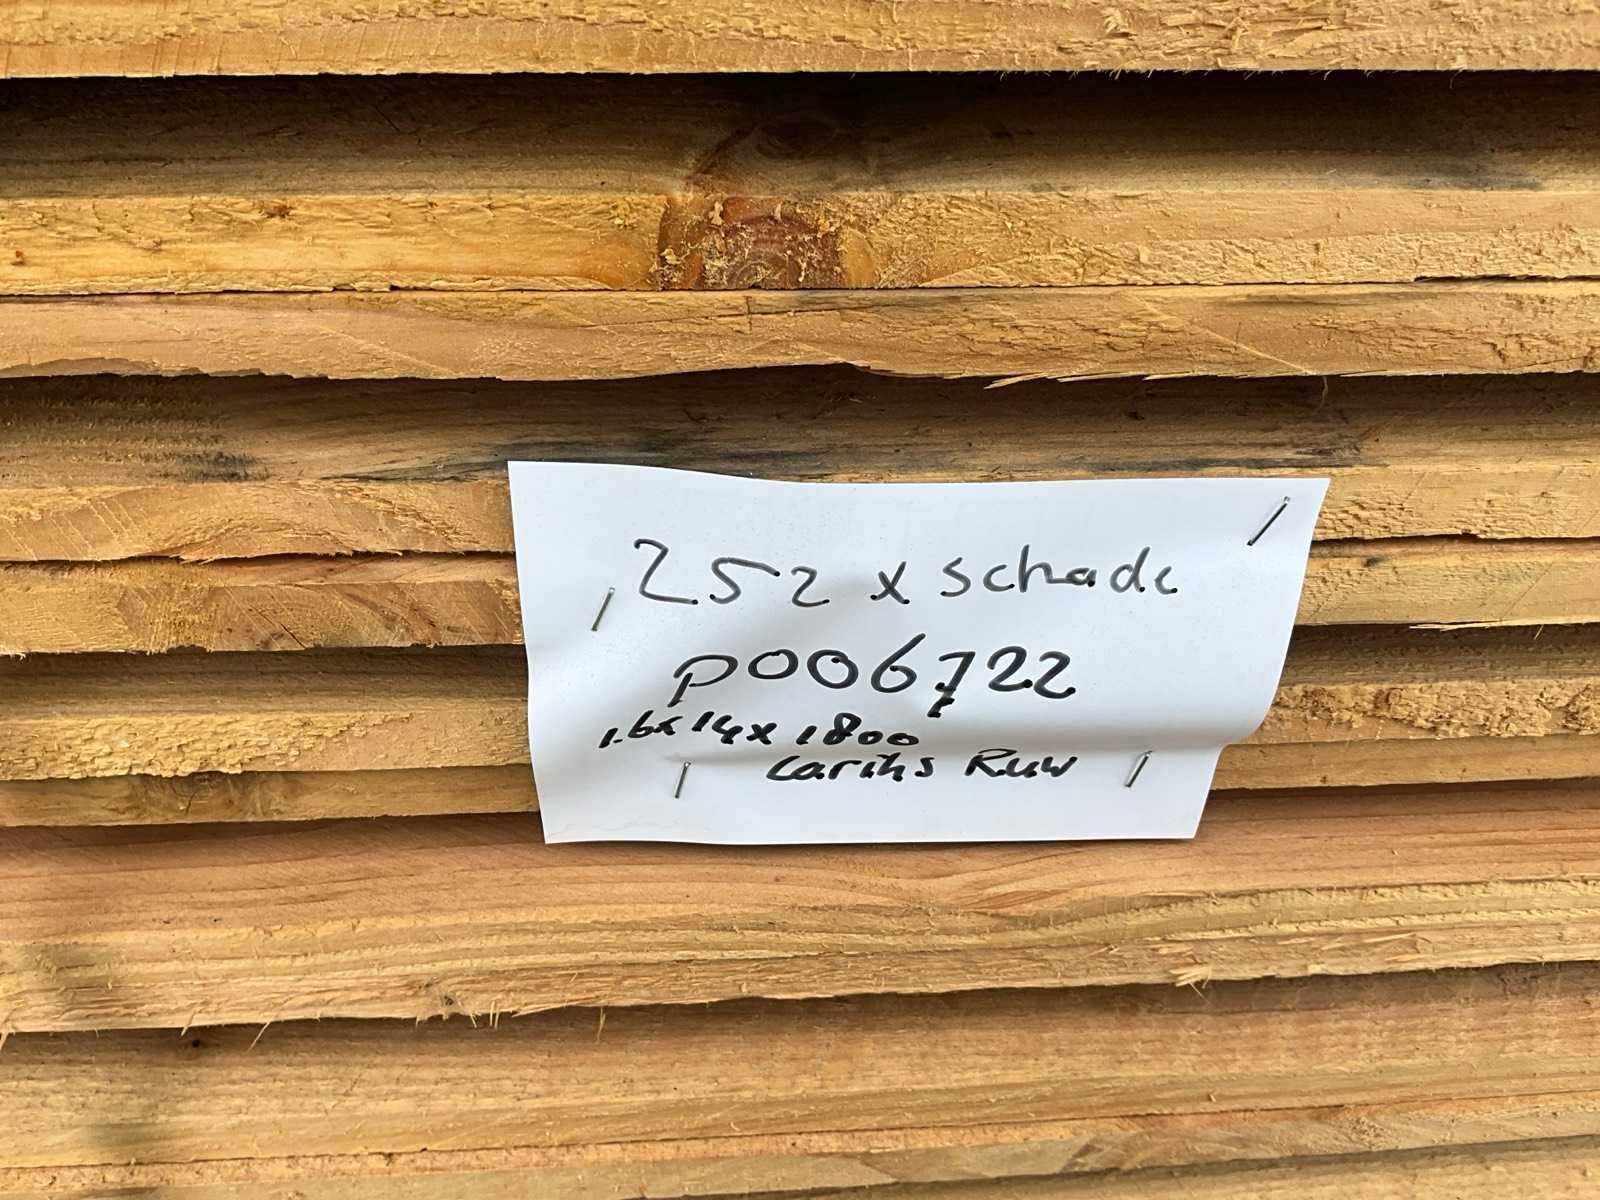 252 x schade
P006722
1.6x14x1800
Lariks Ruw